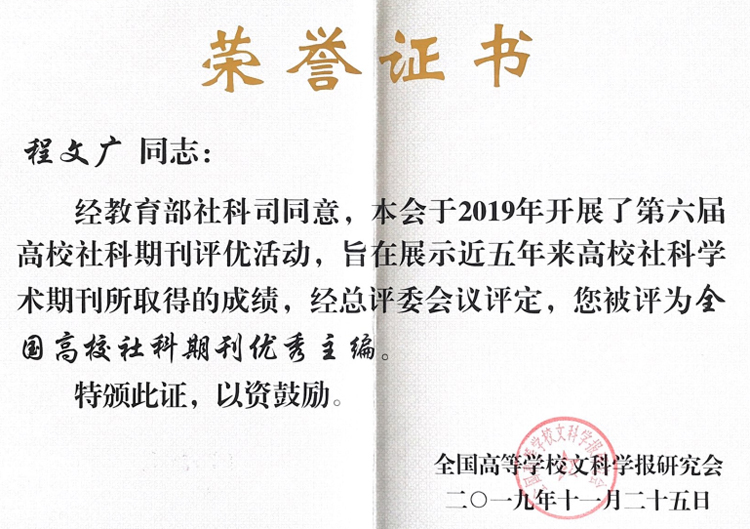 荣誉证书
程文广 同志：
经教育部社科司同意，本会于2019年开展了第六届
高校社科期刊评优活动，旨在展示近五年来高校社科学
术期刊所取得的成绩，经总评委会议评定，您被评为全
国高校社科期刊优秀主编。
特颁此证，以资鼓励。
全国高等学校文科学报研究会
二〇一九年十一月二十五日